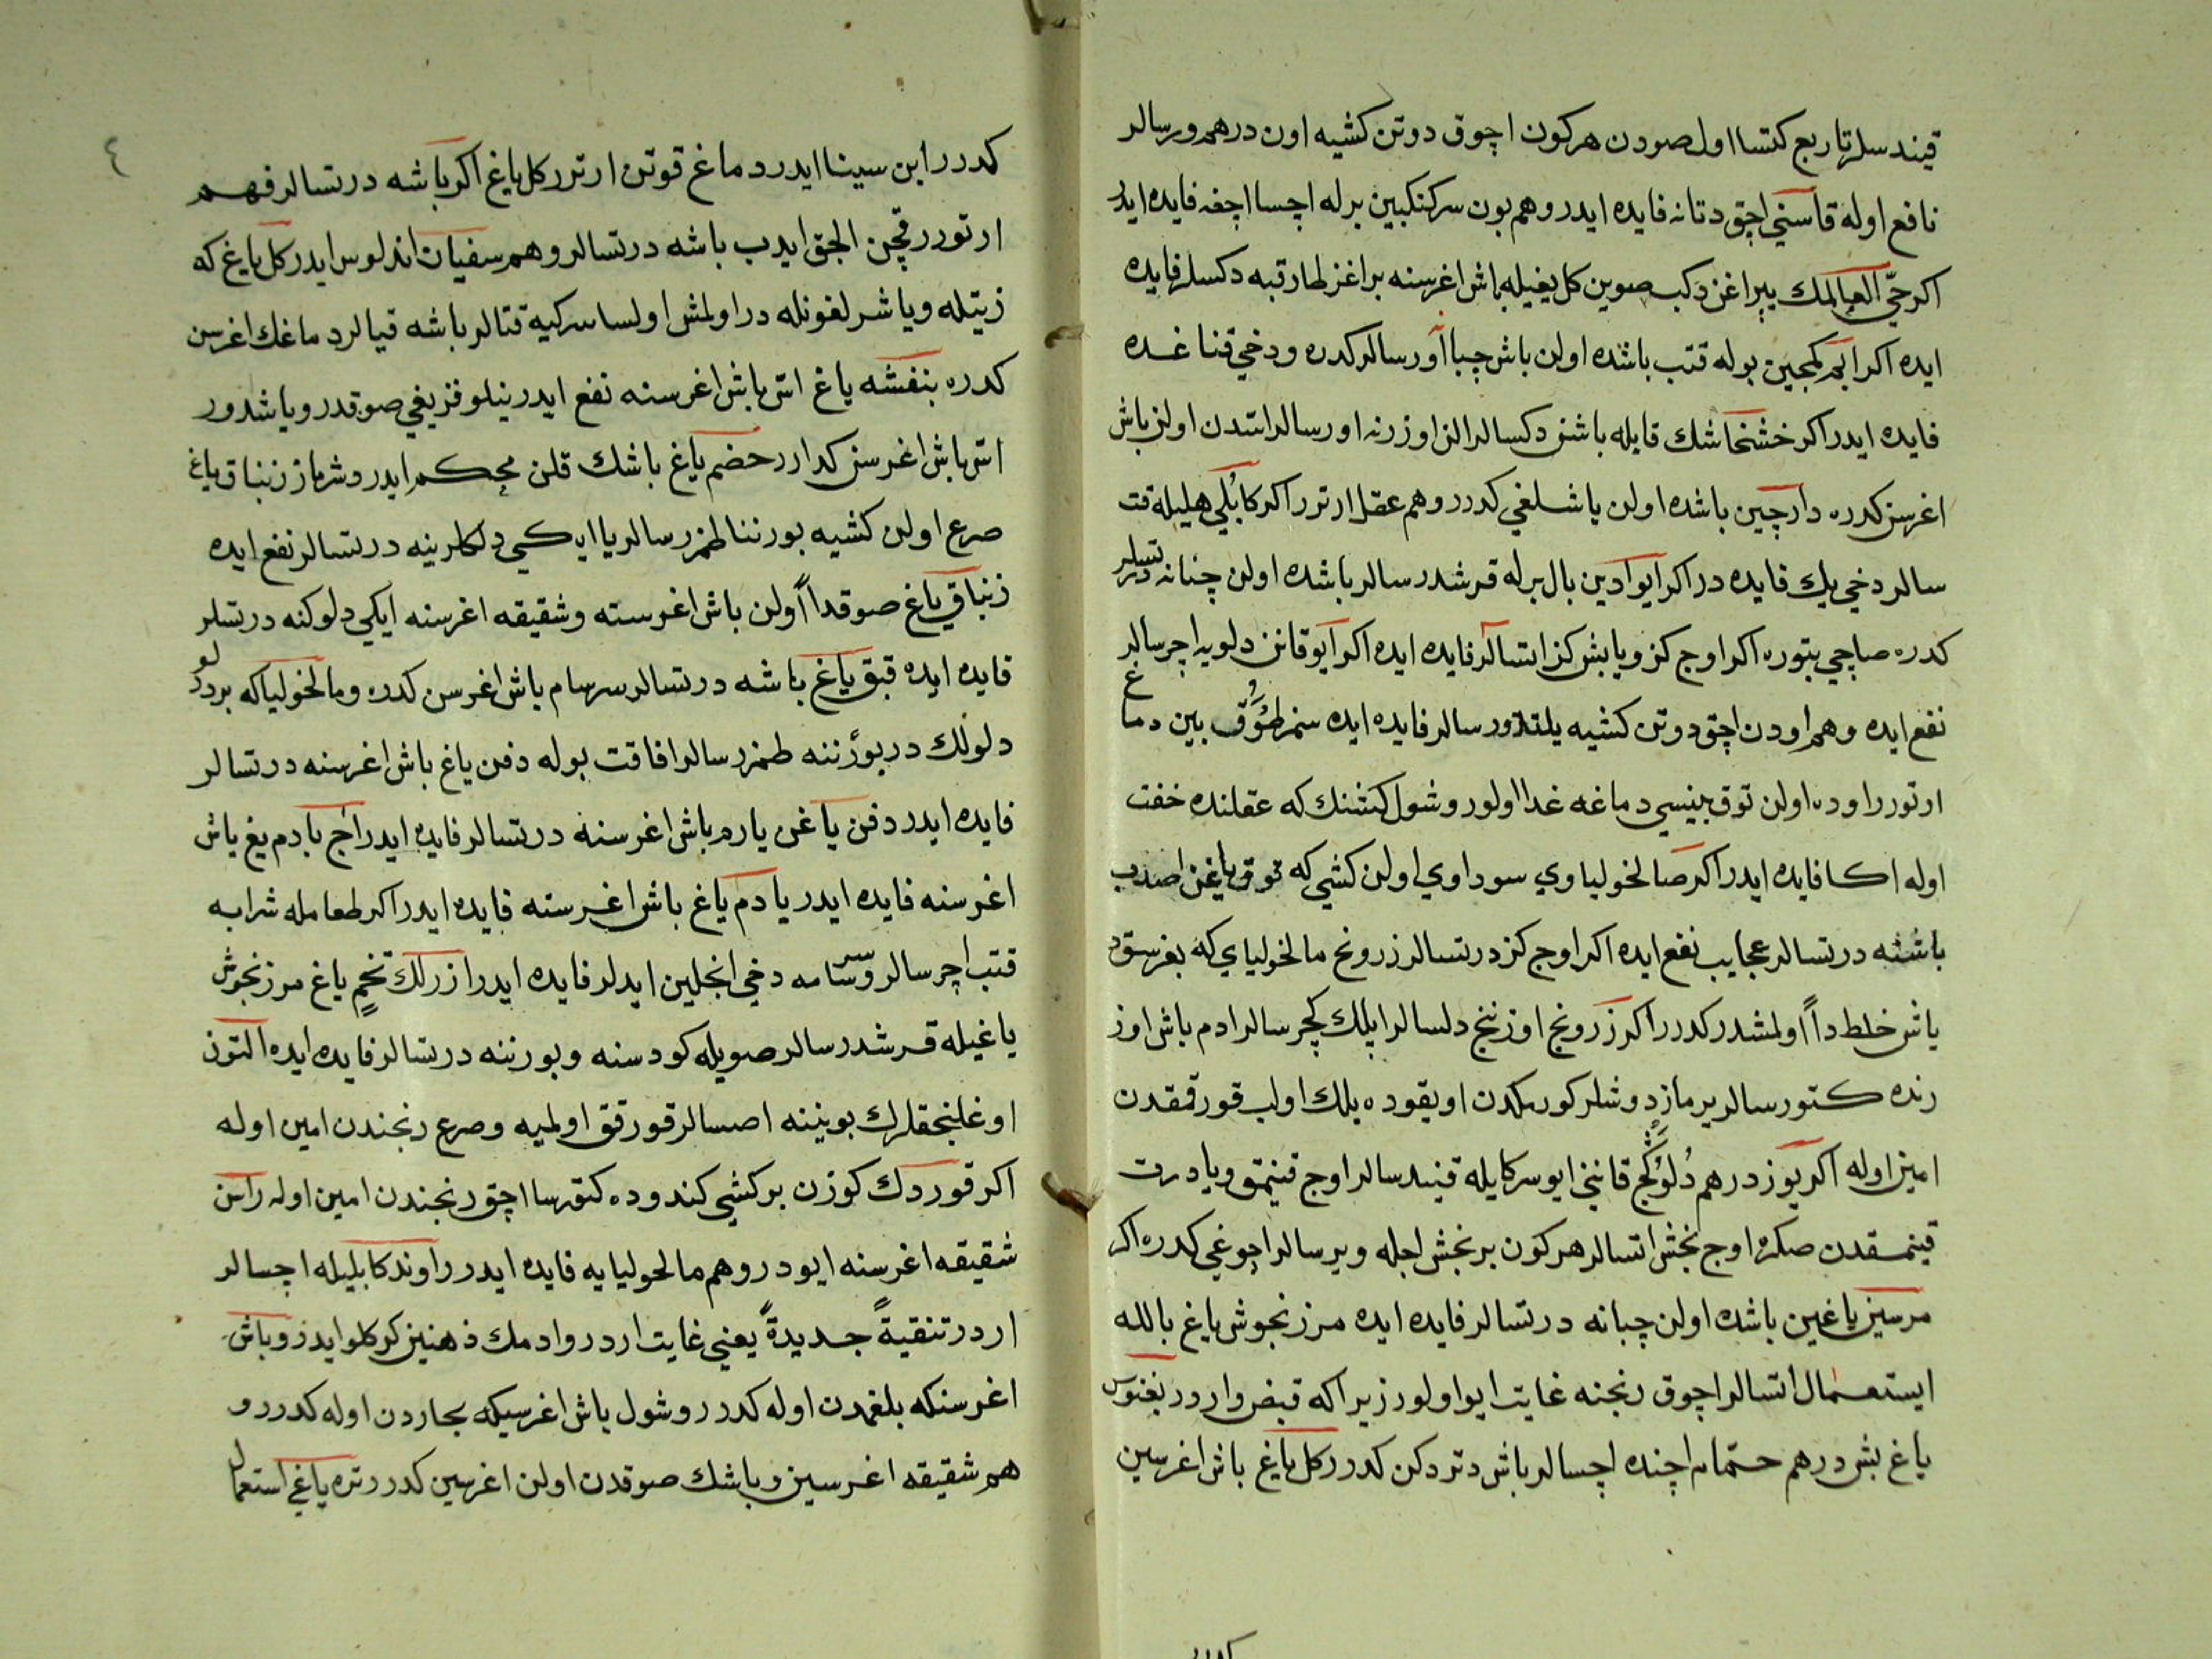 قیندسلر تا ربع كتسا اول صودن هركون اچوق دوتن كشیه اون درهم ورسالر
نافع اوله قاسنی اچق دتانه فایده ایدر وهم بون سركنكبین برله اچسا اچغه فایده ایدر
اكر حیّ العالمك یپراغن دكب صوین كل یغیله باش اغرسنه براغز لطارقبه دكسلر فایده
ایده اكر ابهر كمجین بوله قتب باشده اولن باش چبا اورسالر كدره ودخی قناغده
فایده ایدر اكر خشخاشك قایله باشن دكسالر الن اوزرنه اورسالر استدن اولن باش
اغرسن كدره دارچین باشده اولن یاشلغی كدرر وهم عقل ارترر اكر كابُلی هلیله قت
سالر دخی یك فایده در اكر ایوادین بال برله قرشدرسالر باشده اولن چنانه درتسلر
كدره صاچی بتوره اكر اوج كز ویا بش كز استالر فایده ایده اكر آیو قانن دلویه اچرسالر
نفع ایده وهم اودن اچق دوتن كشیه یلتدورسالر فایده ایده سنرطوُق بین دماغ
ارتورر اوده اولن توق بینسی دماغه غدا اولور وشول كشنك كه عقلنده خفت
اوله اكا فایده ایدر اكر صالخولیاوی سوداوی اولن كشی كه توق یاغن اصدب
باشنه درتسالر عجایب نفع ایده اكر اوج كز درتسالر زرونح مالخولیای كه بغرسقده
یاش خلط داً اولمشدر كدرر اكر زرونج اوزنج دلسالر اپلك كچرسالر ادم باش اوز
رنده كتورسالر یرماز دوشلر كورىكدن اویقوده یلك اولب قورقمقدن
امین اوله اكر یوز درهم دُلوُكج قاننی ایو سركایله قیندسالر اوج قینمق ویا درت
قینمقدن صكره اوج بخش اتسالر هركون بر بخش اجله ویرسالر اچوغی كدره اكر
مرسین یاغین باشده اولن چبانه درتسالر فایده ایده مرزنجوش یاغ بالله
ایستعمال اتسالر اچوق رنجنه غایت ایو اولور زیرا كه قبض وارور بغنوس
یاغ بش درهم حمّام اچنده اچسالر باش دتردكن كدرر كل یاغ باش اغرسین
كدرر ابن سینا ایدر دماغ قوتن ارترر كل یاغ اكر باشه درتسالر فهم
ارتورر قچن الجق ایدب باشه درتسالر وهم سفیان اندلوس ایدر كل یاغ كه
زیتله ویا شرلغونله دراولمش اولسا سركیه قتالر باشه قیالر دماغك اغرسن
كدره بنفشه یاغ اسّ باش اغرسنه نفع ایدر نیلوفر یغی صوقدر ویاشدور
اسّ باش اغرسن كدارر حضم یاغ باشك قلن محكم ایدر دوشرماز زنباق یاغ
صرع اولن كشیه بورننا طمزرسالر یا ایكی دلكلرینه درتسالر نفع ایده
زنباقی یاغ صوقداً اولن باش اغرسنه وشقیقه اغرسنه ایكی دلوكنه درتسلر
فایده ایده قبق یاغ باشه درتسالر سرسام باش اغرسن كدره ومالخولیا كه بردرلو
دلولك در بورننه طمزرسالر افاقت بوله دفن یاغ باش اغرسنه درتسالر
فایده ایدر دفن یاغن یارم باش اغرسنه درتسالر فایده ایدر اج بادم یغ باش
اغرسنه فایده ایدر یادم یاغ باش اغرسنه فایده ایدر اكر طعامله شرابه
قتب اچرسالر وسرسامه دخی انجلین ایدلر فایده ایدر ازرلك تخم یاغ مرزنجوش
یاغیله قرشدرسالر صویله كودسنه وبورننه درتسالر فایده ایده التون
اوغلنجقلرك بویننه اصسالر قورقق اولمیه وصرع رنجندن امین اوله
اكر قوردك كوزن بر كشی كندوده كتورسا اچق رنجندن امین اوله راسن
شقیقه اغرسنه ایودر وهم مالحولیایه فایده ایدر راوند كابلیله اچسالر
اردر تنقیةً جدیدةً یعنی غایت اردر وادمك ذهنین كركلو ایدر وباش
اغرسنكه بلغمدن اوله كدرر وشول باش اغرسیكه بجاردن اوله كدرر و
هم شقیقه اغرسین وباشك صوقدن اولن اغرسین كدرر تره یاغی استعمال